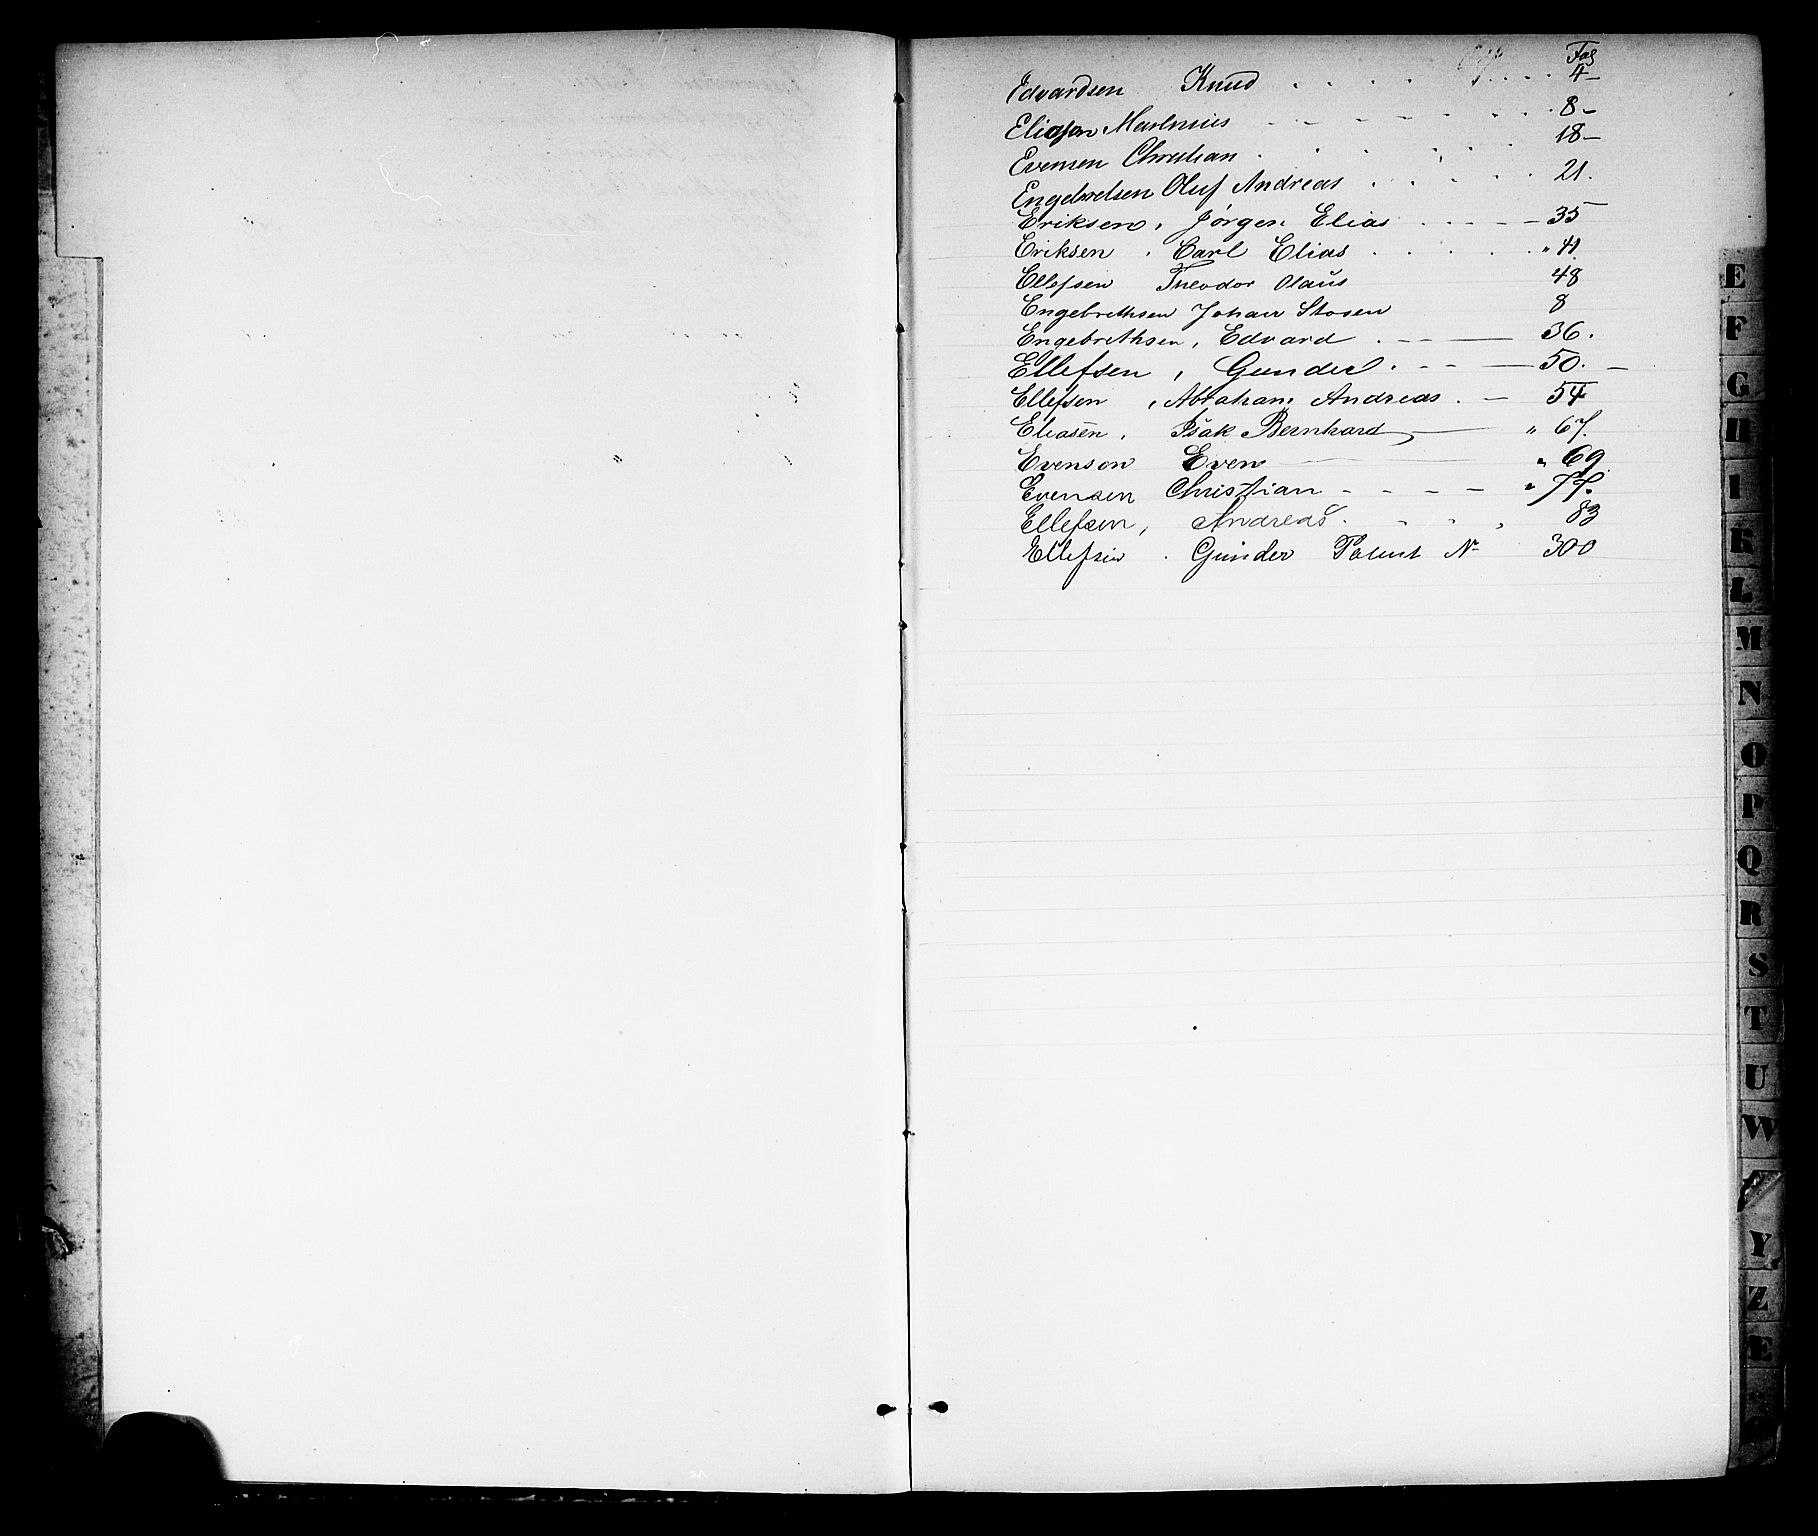 Fol
Edvardsen Knud . . . . . . . . 4 -
Eliassen Martinius - - - - - - - 8 -
Evensen Christian . . . . . . 18 -
Engebretsen Oluf Andreas . . . . . 21.
Eriksen, Jørgen Elias . . - - - 35
Eriksen, Carl Elias . . . . . " 41.
Ellefsen Theodor Olaus 48
Engebrethsen Johan 8
Engebrethsen, Edvard . - - — 36.
Ellefsen, Gunder . - - — 50. -
Ellefsen, Abraham Andreas . - 54
Eliasen, Isak Bernhard, — " 67.
Evenson Even — " 69
Evensen Christian - - - - " 77.
Ellefsen, Andreas . - - - , 83
Ellefsen . Gunder Patent No 300
E
F
G
H
I
K
L
M
N
O
P
Q
R
S
T
U
W
Y
Z
Æ